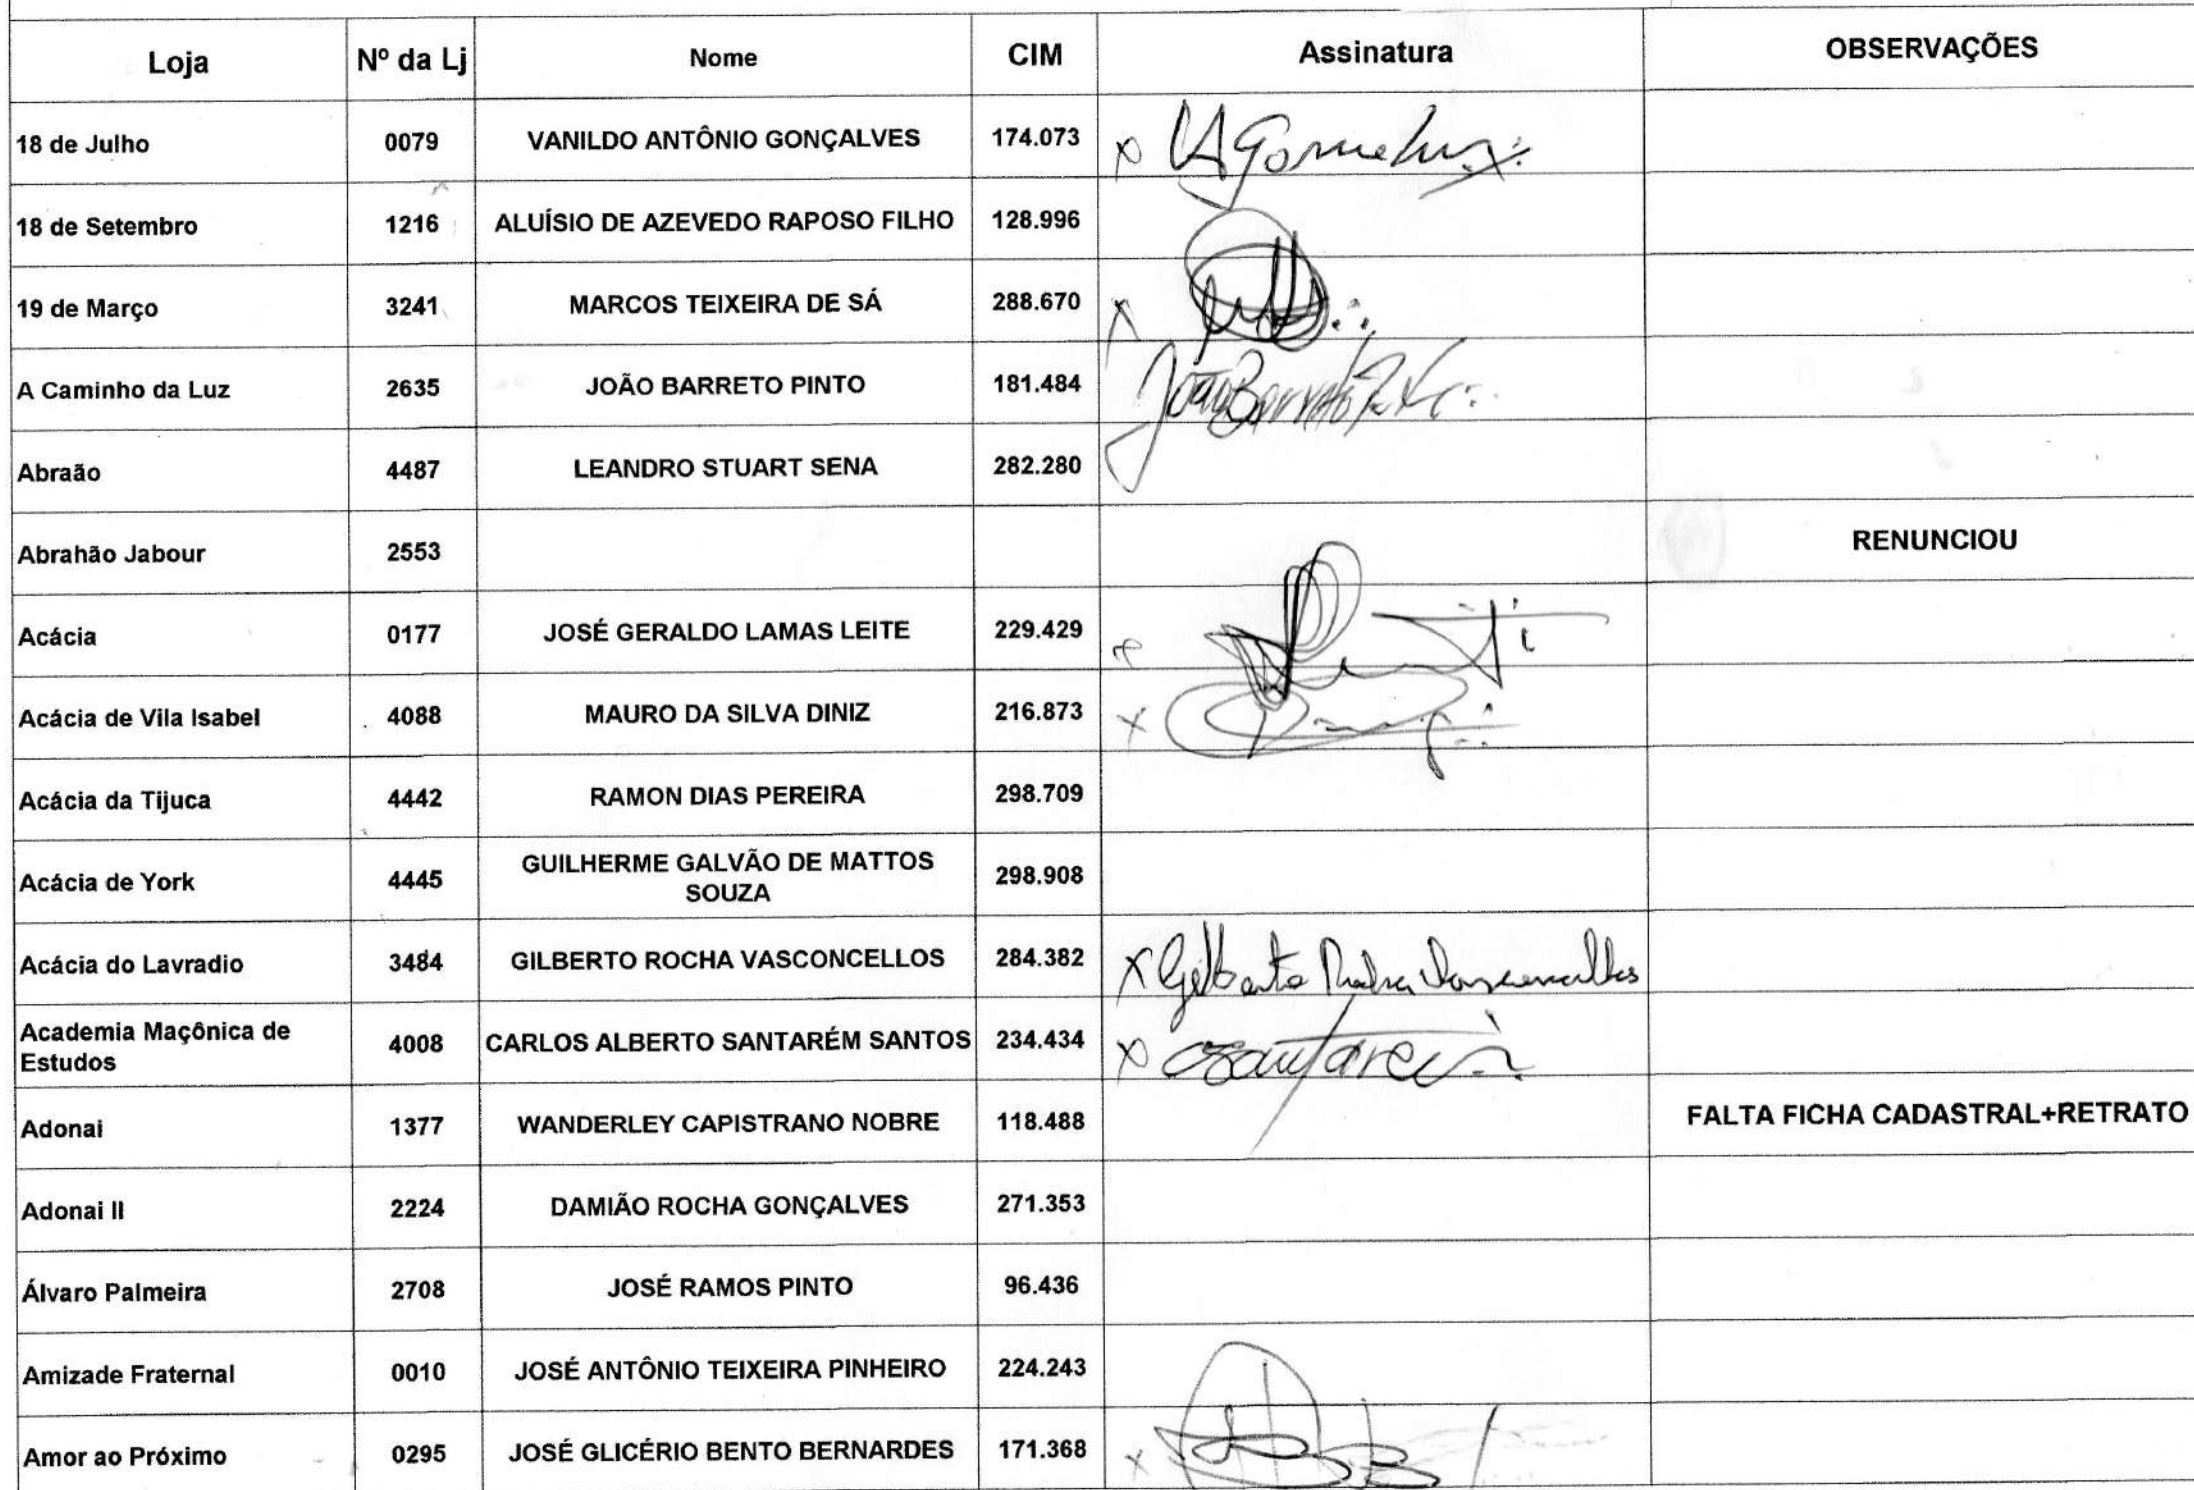 Loja Nº da Lj Nome CIM Assinatura OBSERVAÇÕES
18 de Julho 0079 VANILDO ANTÔNIO GONÇALVES 174.073 x
18 de Setembro 1216 ALUÍSIO DE AZEVEDO RAPOSO FILHO 128.996
19 de Março 3241 MARCOS TEIXEIRA DE SÁ 288.670 x
A Caminho da Luz 2635 JOÃO BARRETO PINTO 181.484 João Barreto
Abraão 4487 LEANDRO STUART SENA 282.280
Abrahão Jabour 2553 RENUNCIOU
Acácia 0177 JOSÉ GERALDO LAMAS LEITE 229.429 x
Acácia de Vila Isabel 4088 MAURO DA SILVA DINIZ 216.873 x
Acácia da Tijuca 4442 RAMON DIAS PEREIRA 298.709
Acácia de York 4445 GUILHERME GALVÃO DE MATTOS
SOUZA 298.908
Acácia do Lavradio 3484 GILBERTO ROCHA VASCONCELLOS 284.382 x Gilberto Rocha Vasconcellos
Academia Maçônica de
Estudos 4008 CARLOS ALBERTO SANTARÉM SANTOS 234.434 x
Adonai 1377 WANDERLEY CAPISTRANO NOBRE 118.488 FALTA FICHA CADASTRAL+RETRATO
Adonai II 2224 DAMIÃO ROCHA GONÇALVES 271.353
Álvaro Palmeira 2708 JOSÉ RAMOS PINTO 96.436
Amizade Fraternal 0010 JOSÉ ANTÔNIO TEIXEIRA PINHEIRO 224.243
Amor ao Próximo 0295 JOSÉ GLICÉRIO BENTO BERNARDES 171.368 x